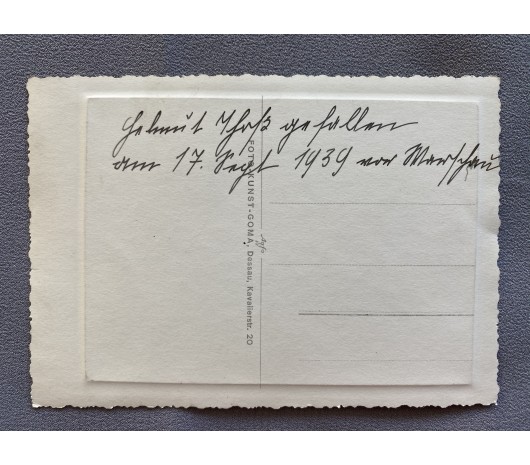 Helmut Thoß gefallen
am 17. Sept 1939 vor Warschau
FOTO-KUNST-GOMA, Dessau, Kavalierstr. 20